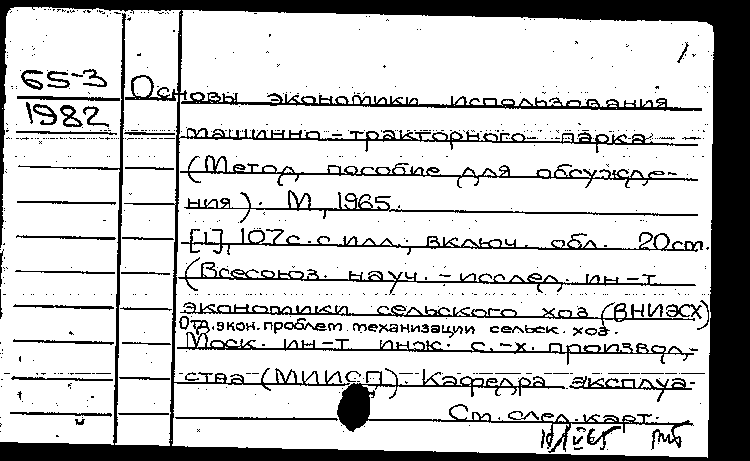 1.
65-3
1982
Основы экономики использования
машинно-тракторного парка
(Метод. пособие для обсужде-
ния). М, 1965.
[1], 107с. с илл., включ. обл. 20см.
(Всесоюз. науч.-исслед. ин-т
экономики сельского хоз (ВНИЭСХ)
Отд. экон. проблем механизации сельск. хоз.
Моск. ин-т инж. с.-х. производ-
ства (МИИСП). Кафедра эксплуа-
См. след. карт.